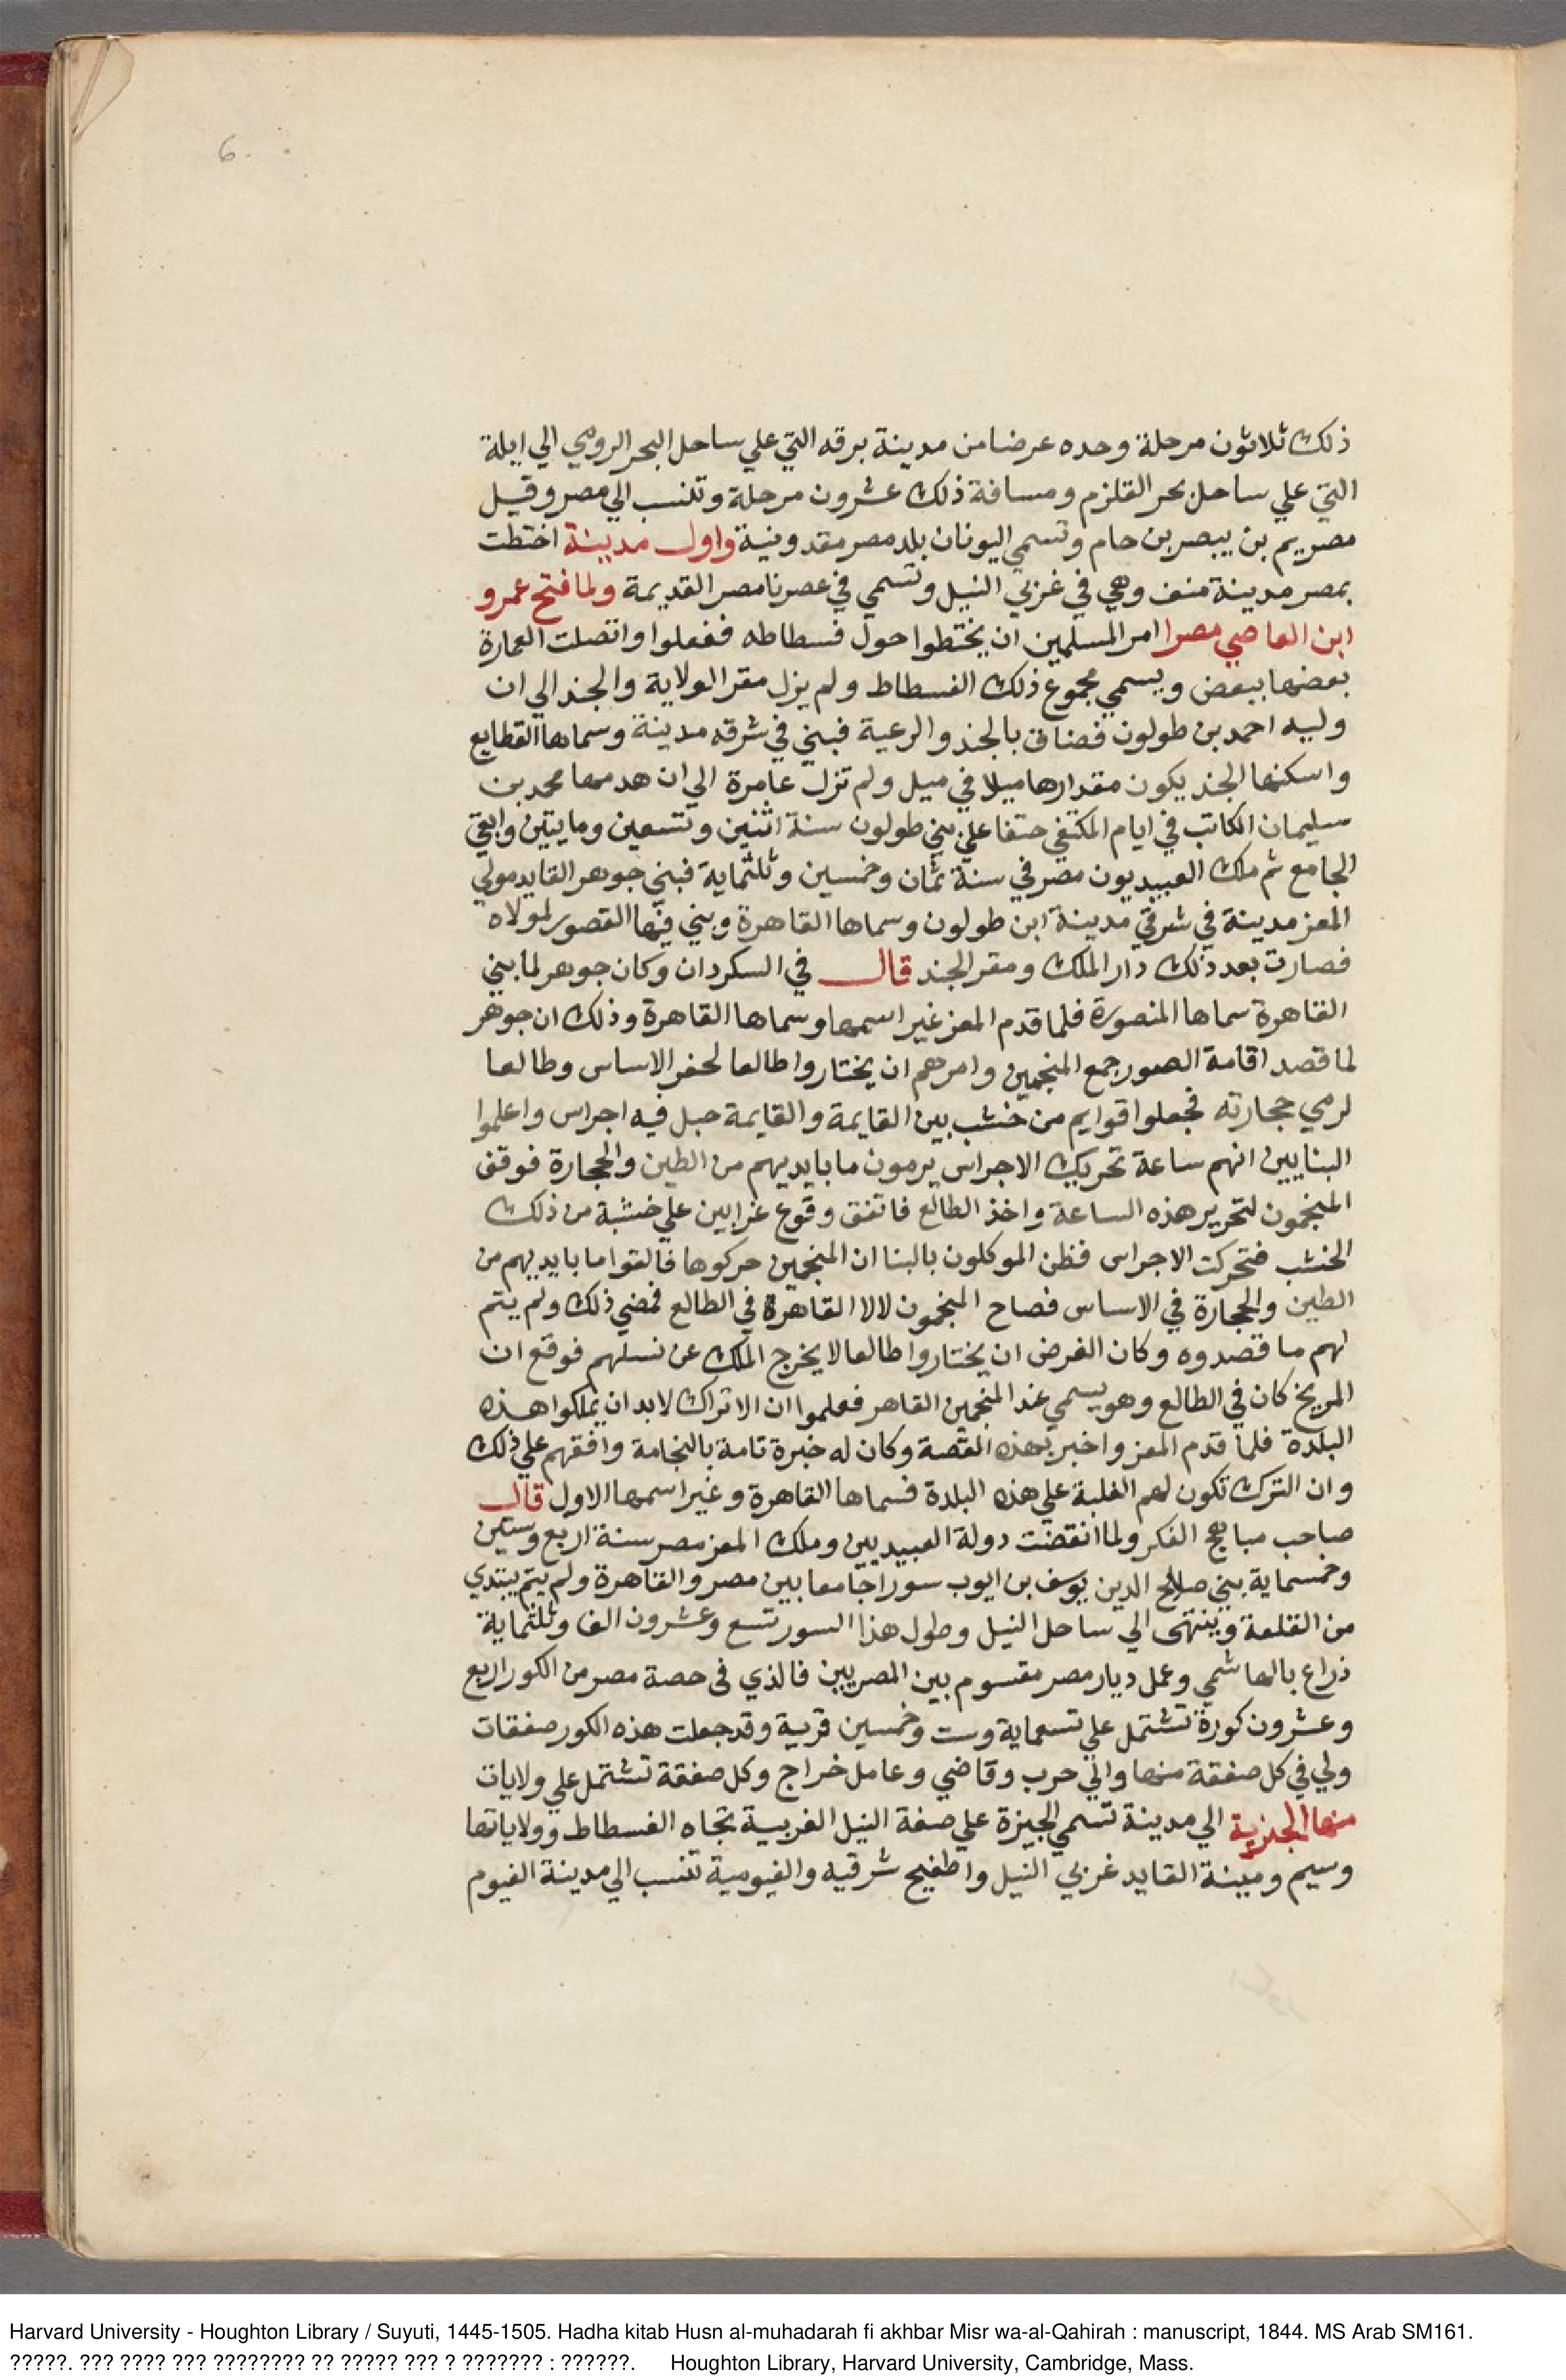 6.
ذلك ثلاثون مرحلة وحده عرضا من مدينة برقه التي علي ساحل البحر الرومي الي ايلة
التي علي ساحل بحر القلزم ومسافة ذلك عشرون مرحلة وتنسب الي مصر وقيل
مصريم بن بيصر بن حام وتسمي اليونان بلد مصر مقدونية واول مدينة اختطت
بمصر مدينة منف وهي في غزبي النيل وتسمي في عصرنا مصر القديمة ولما فتح عمرو
ابن العاصي مصرا امر المسلمين ان يختطوا حول فسطاطه ففعلوا واتصلت العمارة
بعضها ببعض ويسمي مجموع ذلك الفسطاط ولم يزل مقر الولاية والجند الي ان
وليه احمد بن طولون فضاق بالجند والرعية فبني في شرقه مدينة وسماها القطايع
واسكنها الجند يكون مقدارها ميلا في ميل ولم تزل عامرة الي ان هدمها محمد بن
سليمان الكاتب في ايام المكتفي حنقا علي بني طولون سنة اثنين وتسعين ومايتين وابقي
الجامع ثم ملك العبيديون مصر في سنة ثمان وخمسين وثلثماية فبني جوهر القايد مولي
المعز مدينة في شرقي مدينة ابن طولون وسماها القاهرة وبني فيها القصور لمولاه
فصارت بعد ذلك دار الملك ومقر الجند قال في السكردان وكان جوهر لما بني
القاهرة سماها المنصورة فلما قدم المعز غير اسمها وسماها القاهرة وذلك ان جوهر
لما قصد اقامة الصور جمع المنجمين وامرهم ان يختاروا طالعا لحفر الاساس وطالعا
لرمي حجارته فجعلوا قوايم من خشب بين القايمة والقايمة حبل فيه اجراس واعلموا
البنايين انهم ساعة تحريك الاجراس يرمون ما بايديهم من الطين والحجارة فوقف
المنجمون لتحرير هذه الساعة واخذ الطالع فاتفق وقوع غرابين علي خشبة من ذلك
الخشب فتحركت الاجراس فظن الموكلون بالبنا ان المنجمين حركوها فالقوا ما بايديهم من
الطين والحجارة في الاساس فصاح المنجمون لالا القاهرة في الطالع فمضي ذلك ولم يتم
لهم ما قصدوه وكان الغرض ان يختاروا طالعا لا يخرج الملك عن نسلهم فوقع ان
المريخ كان في الطالع وهو يسمي عند المنجمين القاهر فعلموا ان الاتراك لابد ان يملكوا هذه
البلدة فلما قدم المعز واخبر بهذه القصة وكان له خبرة تامة بالنجامة وافقهم علي ذلك
وان الترك تكون لهم الغلبة علي هذه البلدة فسماها القاهرة وغير اسمها الاول قال
صاحب مباهج الفكر ولما انقضت دولة العبيديين وملك المعز مصر سنة اربع وستين
وخمسماية بني صلاح الدين يوسف بن ايوب سورا جامعا بين مصر والقاهرة ولم يتم يبتدي
من القلعة وينتهى الي ساحل النيل وطول هذا السور تسع وعشرون الف وثلثماية
ذراع بالهاشمي وعمل ديار مصر مقسوم بين المصريين فالذي فى حصة مصر من الكور اربع
وعشرون كورة تشتمل علي تسعماية وست وخمسين قرية وقد جعلت هذه الكور صفقات
ولي في كل صفقة منها والي حرب وقاضي وعامل خراج وكل صفقة تشتمل علي ولايات
منها الجيزية الي مدينة تسمي الجيزة علي صفة النيل الغربية تجاه الفسطاط وولاياتها
وسيم ومينة القايد غربي النيل واطفيح شرقيه والفيومية تنسب الي مدينة الفيوم
Harvard University - Houghton Library / Suyuti, 1445-1505. Hadha kitab Husn al-muhadarah fi akhbar Misr wa-al-Qahirah : manuscript, 1844. MS Arab SM161.
?????. ??? ???? ??? ???????? ?? ????? ??? ? ??????? : ??????. Houghton Library, Harvard University, Cambridge, Mass.